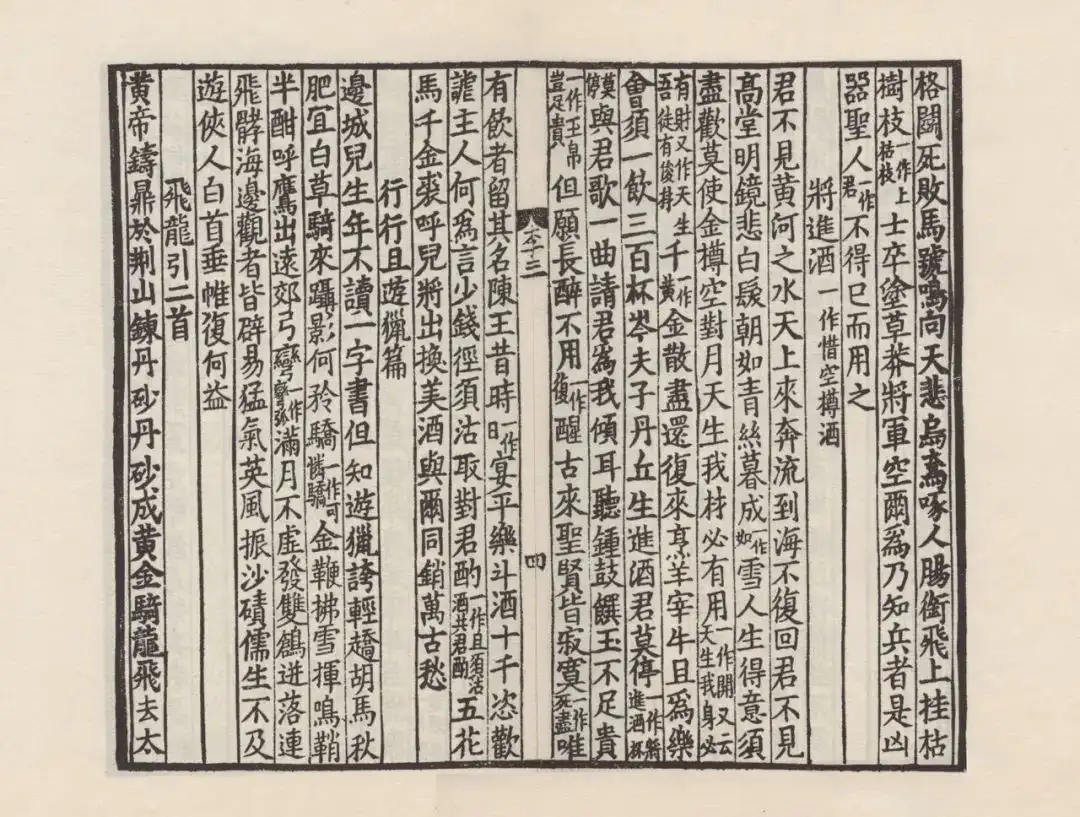 格鬪死敗馬號鳴向天悲烏鳶啄人腸銜飛上挂枯
樹枝一作上枯枝士卒塗草莽將軍空爾爲乃知兵者是凶
器聖人一作君不得已而用之
將進酒一作惜空樽酒
君不見黃河之水天上來奔流到海不復回君不見
高堂明鏡悲白髮朝如青絲暮成一作如雪人生得意須
盡歡莫使金樽空對月天生我材必有用一作開又云天生我身必
有財又作天生吾徒有俊材千一作黃金散盡還復來烹羊宰牛且爲樂
會須一飲三百杯岑夫子丹丘生進酒君莫停一作將進酒杯
莫停與君歌一曲請君爲我傾耳聽鍾鼓饌玉不足貴
一作玉帛豈足貴但願長醉不用一作復醒古來聖賢皆寂寞一作死盡唯
李三 四
有飲者留其名陳王昔時一作日宴平樂斗酒十千恣歡
謔主人何爲言少錢徑須沽取對君酌一作且須沽酒共君酌五花
馬千金裘呼兒將出換美酒與爾同銷萬古愁
行行且遊獵篇
邊城兒生年不讀一字書但知遊獵誇輕趫胡馬秋
肥宜白草騎來躡影何矜驕一作可憐驕金鞭拂雪揮鳴鞘
半酣呼鷹出遠郊弓彎一作彎弧滿月不虛發雙鶬迸落連
飛髇海邊觀者皆辟易猛氣英風振沙磧儒生不及
遊俠人白首垂帷復何益
飛龍引二首
黃帝鑄鼎於荆山鍊丹砂丹砂成黃金騎龍飛去太